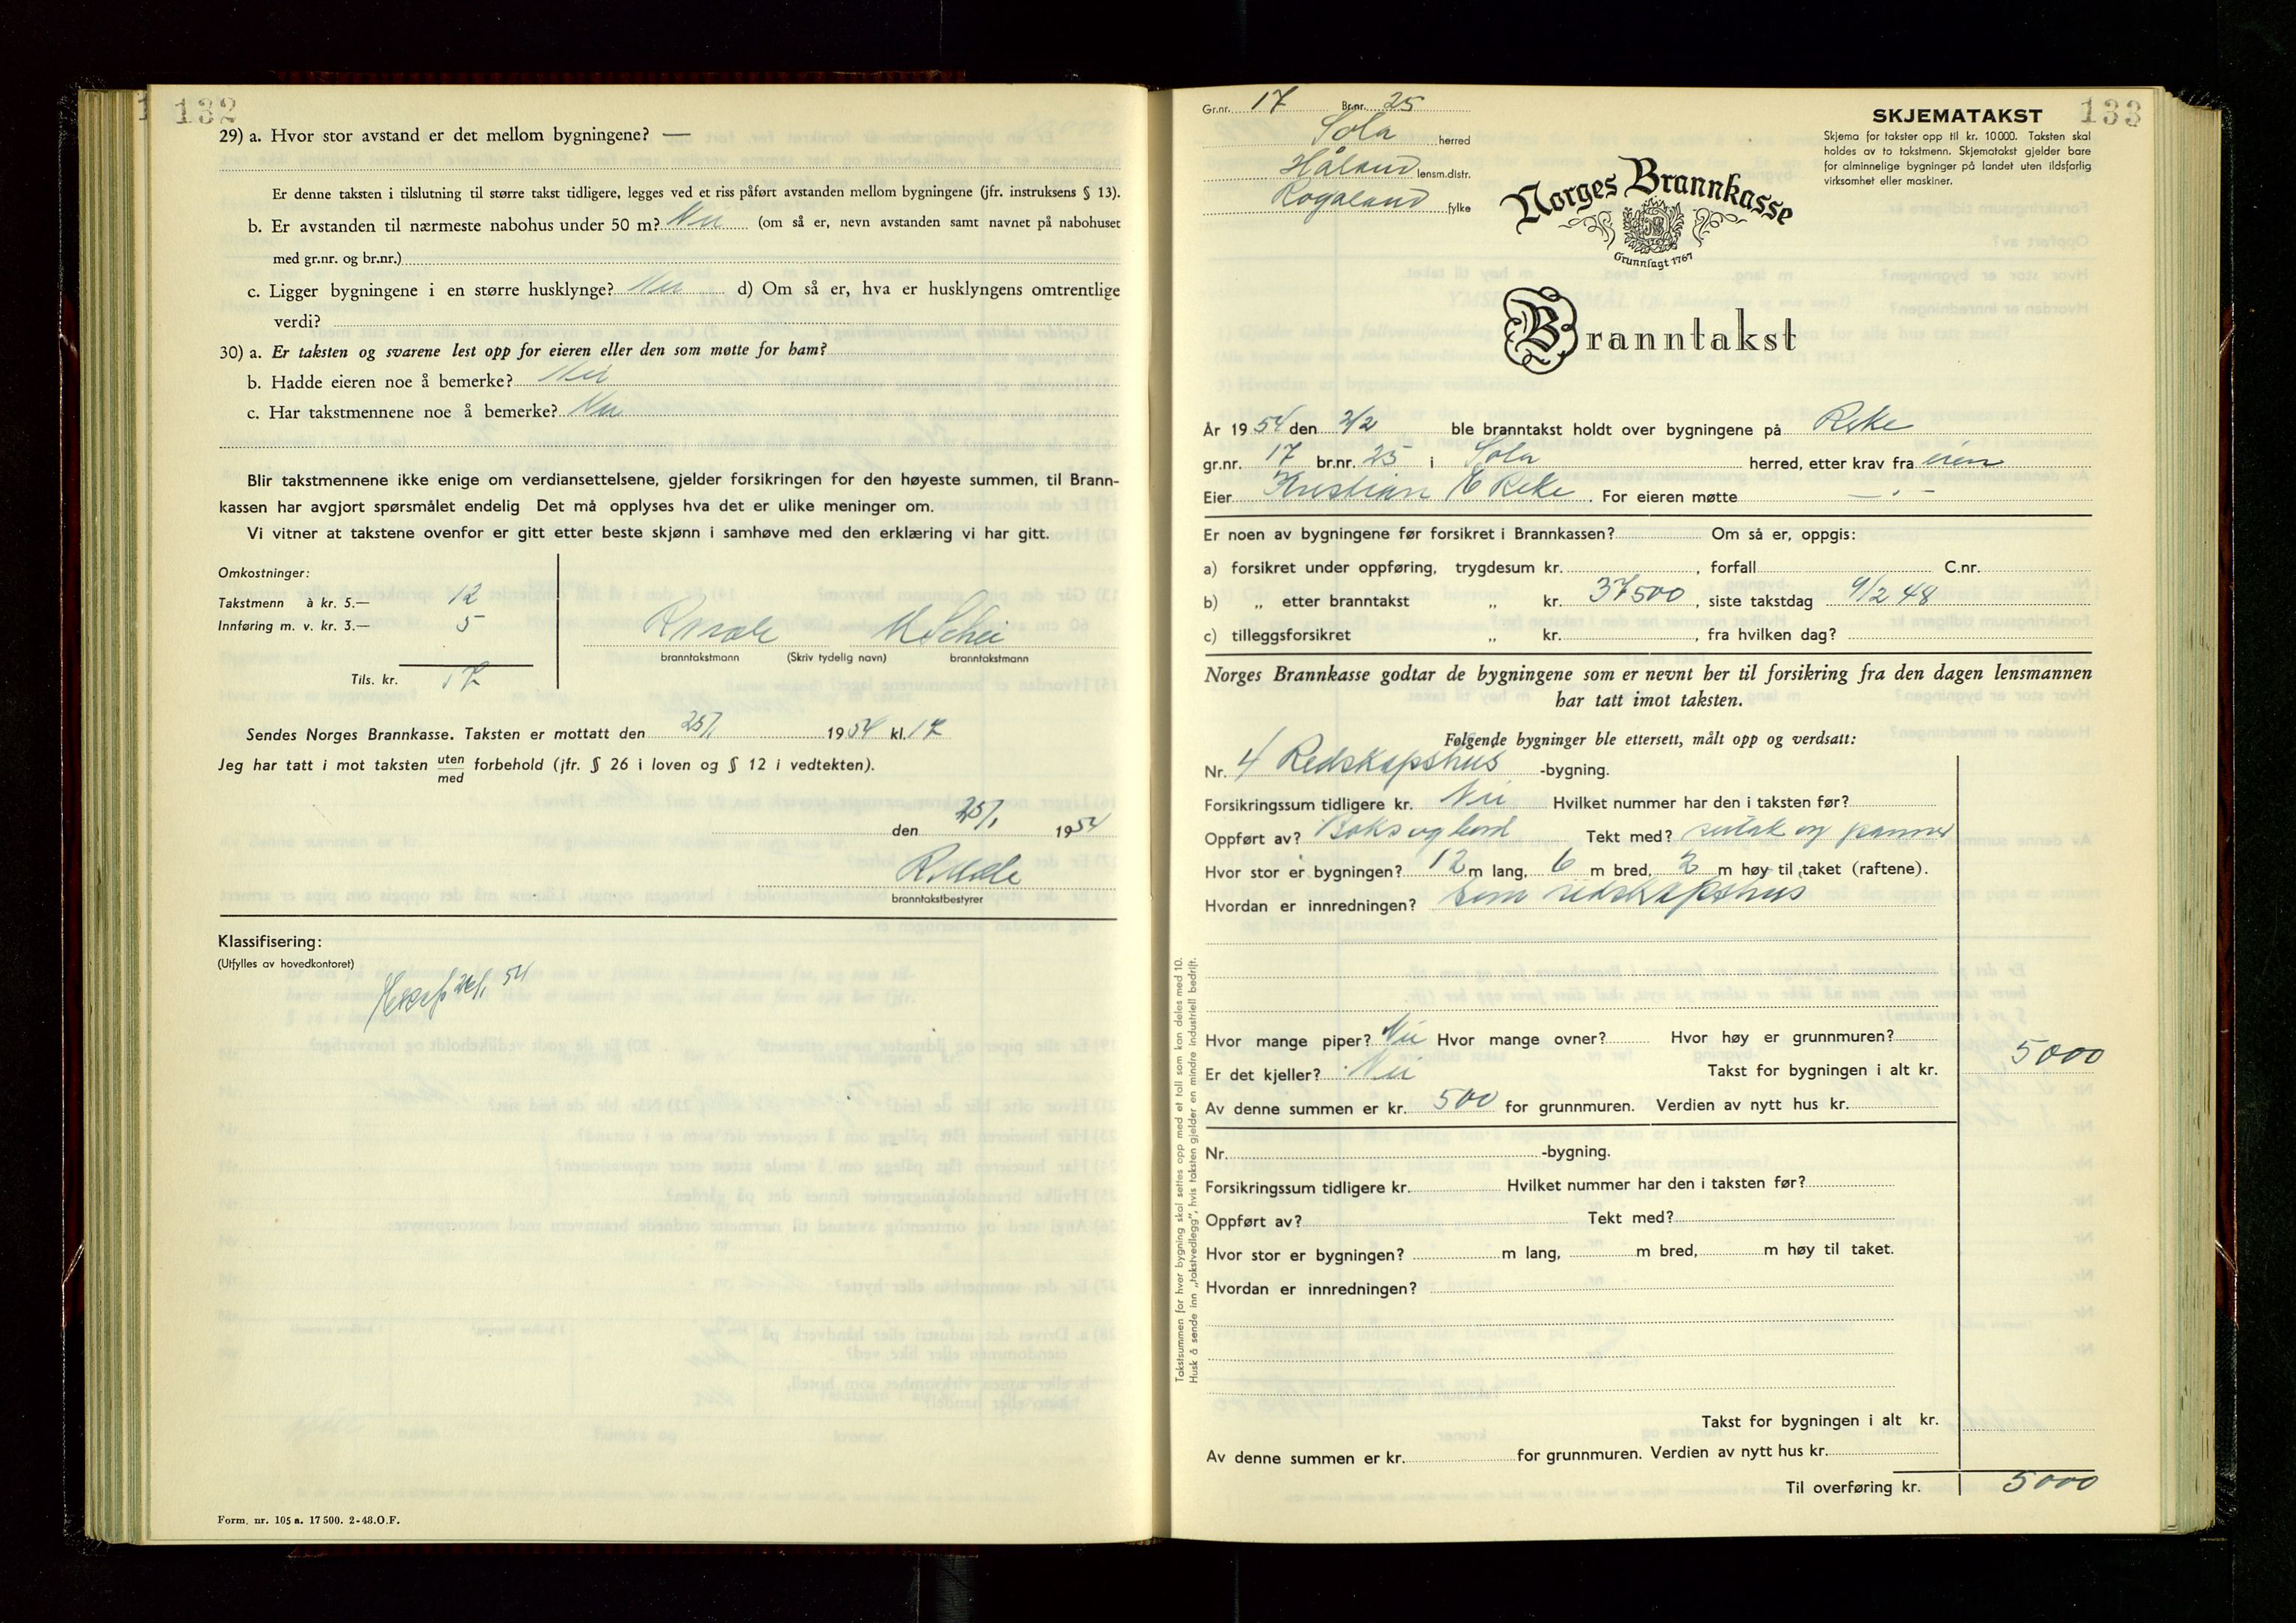 132
29) a. Hvor stor avstand er det mellom bygningene? —
Er denne taksten i tilslutning til større takst tidligere, legges ved et riss påført avstanden mellom bygningene (jfr. instruksens § 13).
b. Er avstanden til nærmeste nabohus under 50 m? Nei (om så er, nevn avstanden samt navnet på nabohuset
med gr.nr. og br.nr.)
c. Ligger bygningene i en større husklynge? Nei d) Om så er, hva er husklyngens omtrentlige
verdi?
30) a. Er taksten og svarene lest opp for eieren eller den som møtte for ham?
b. Hadde eieren noe å bemerke? Nei
c. Har takstmennene noe å bemerke? Nei
Blir takstmennene ikke enige om verdiansettelsene, gjelder forsikringen for den høyeste summen, til Brann-
kassen har avgjort spørsmålet endelig Det må opplyses hva det er ulike meninger om.
Vi vitner at takstene ovenfor er gitt etter beste skjønn i samhøve med den erklæring vi har gitt.
Omkostninger:
Takstmenn à kr. 5.— 12
Innføring m. v. kr. 3.— 5
Tils. kr. 17
branntakstmann (Skriv tydelig navn) branntakstmann
Sendes Norges Brannkasse. Taksten er mottatt den 25/1 1954 kl. 17
Jeg har tatt i mot taksten uten
med forbehold (jfr. § 26 i loven og § 12 i vedtekten).
den 25/1 1954
branntakstbestyrer
Klassifisering:
(Utfylles av hovedkontoret)
54
Form. nr. 105 a. 17 500. 2-48. O.F.
133
Gr.nr. 17 Br.nr. 25
Sola herred
Håland lensm.distr.
Rogaland fylke
SKJEMATAKST
Skjema for takster opp til kr. 10 000. Taksten skal
holdes av to takstmenn. Skjematakst gjelder bare
for alminnelige bygninger på landet uten ildsfarlig
virksomhet eller maskiner.
Norges Brannkasse
Grunnlagt 1767
Branntakst
År 1954 den 2/2 ble branntakst holdt over bygningene på Reke
gr.nr. 17 br.nr. 25 i Sola herred, etter krav fra eieren
Eier Kristian E Reke. For eieren møtte — " —
Er noen av bygningene før forsikret i Brannkassen? Om så er, oppgis:
a) forsikret under oppføring, trygdesum kr. , forfall C.nr.
b) „ etter branntakst „ kr. 37500, siste takstdag 9/2 48
c) tilleggsforsikret „ kr. , fra hvilken dag?
Norges Brannkasse godtar de bygningene som er nevnt her til forsikring fra den dagen lensmannen
har tatt imot taksten.
Følgende bygninger ble ettersett, målt opp og verdsatt:
Nr. 4 Redskapshus -bygning.
Forsikringssum tidligere kr. Nei Hvilket nummer har den i taksten før?
Oppført av? Boks og bord Tekt med? sutak og panner
Hvor stor er bygningen? 12 m lang, 6 m bred, 2 m høy til taket (raftene).
Hvordan er innredningen? Som redskapshus
Hvor mange piper? Nei Hvor mange ovner? Hvor høy er grunnmuren?
Er det kjeller? Nei Takst for bygningen i alt kr. 5000
Av denne summen er kr. 500 for grunnmuren. Verdien av nytt hus kr.
Nr. -bygning.
Forsikringssum tidligere kr. Hvilket nummer har den i taksten før?
Oppført av? Tekt med?
Hvor stor er bygningen? m lang, m bred, m høy til taket.
Hvordan er innredningen?
Takst for bygningen i alt kr.
Av denne summen er kr. for grunnmuren. Verdien av nytt hus kr.
Til overføring kr. 5000
Takstsummen for hver bygning skal settes opp med et tall som kan deles med 10.
Husk å sende inn „takstvedlegg", hvis taksten gjelder en mindre industriell bedrift.